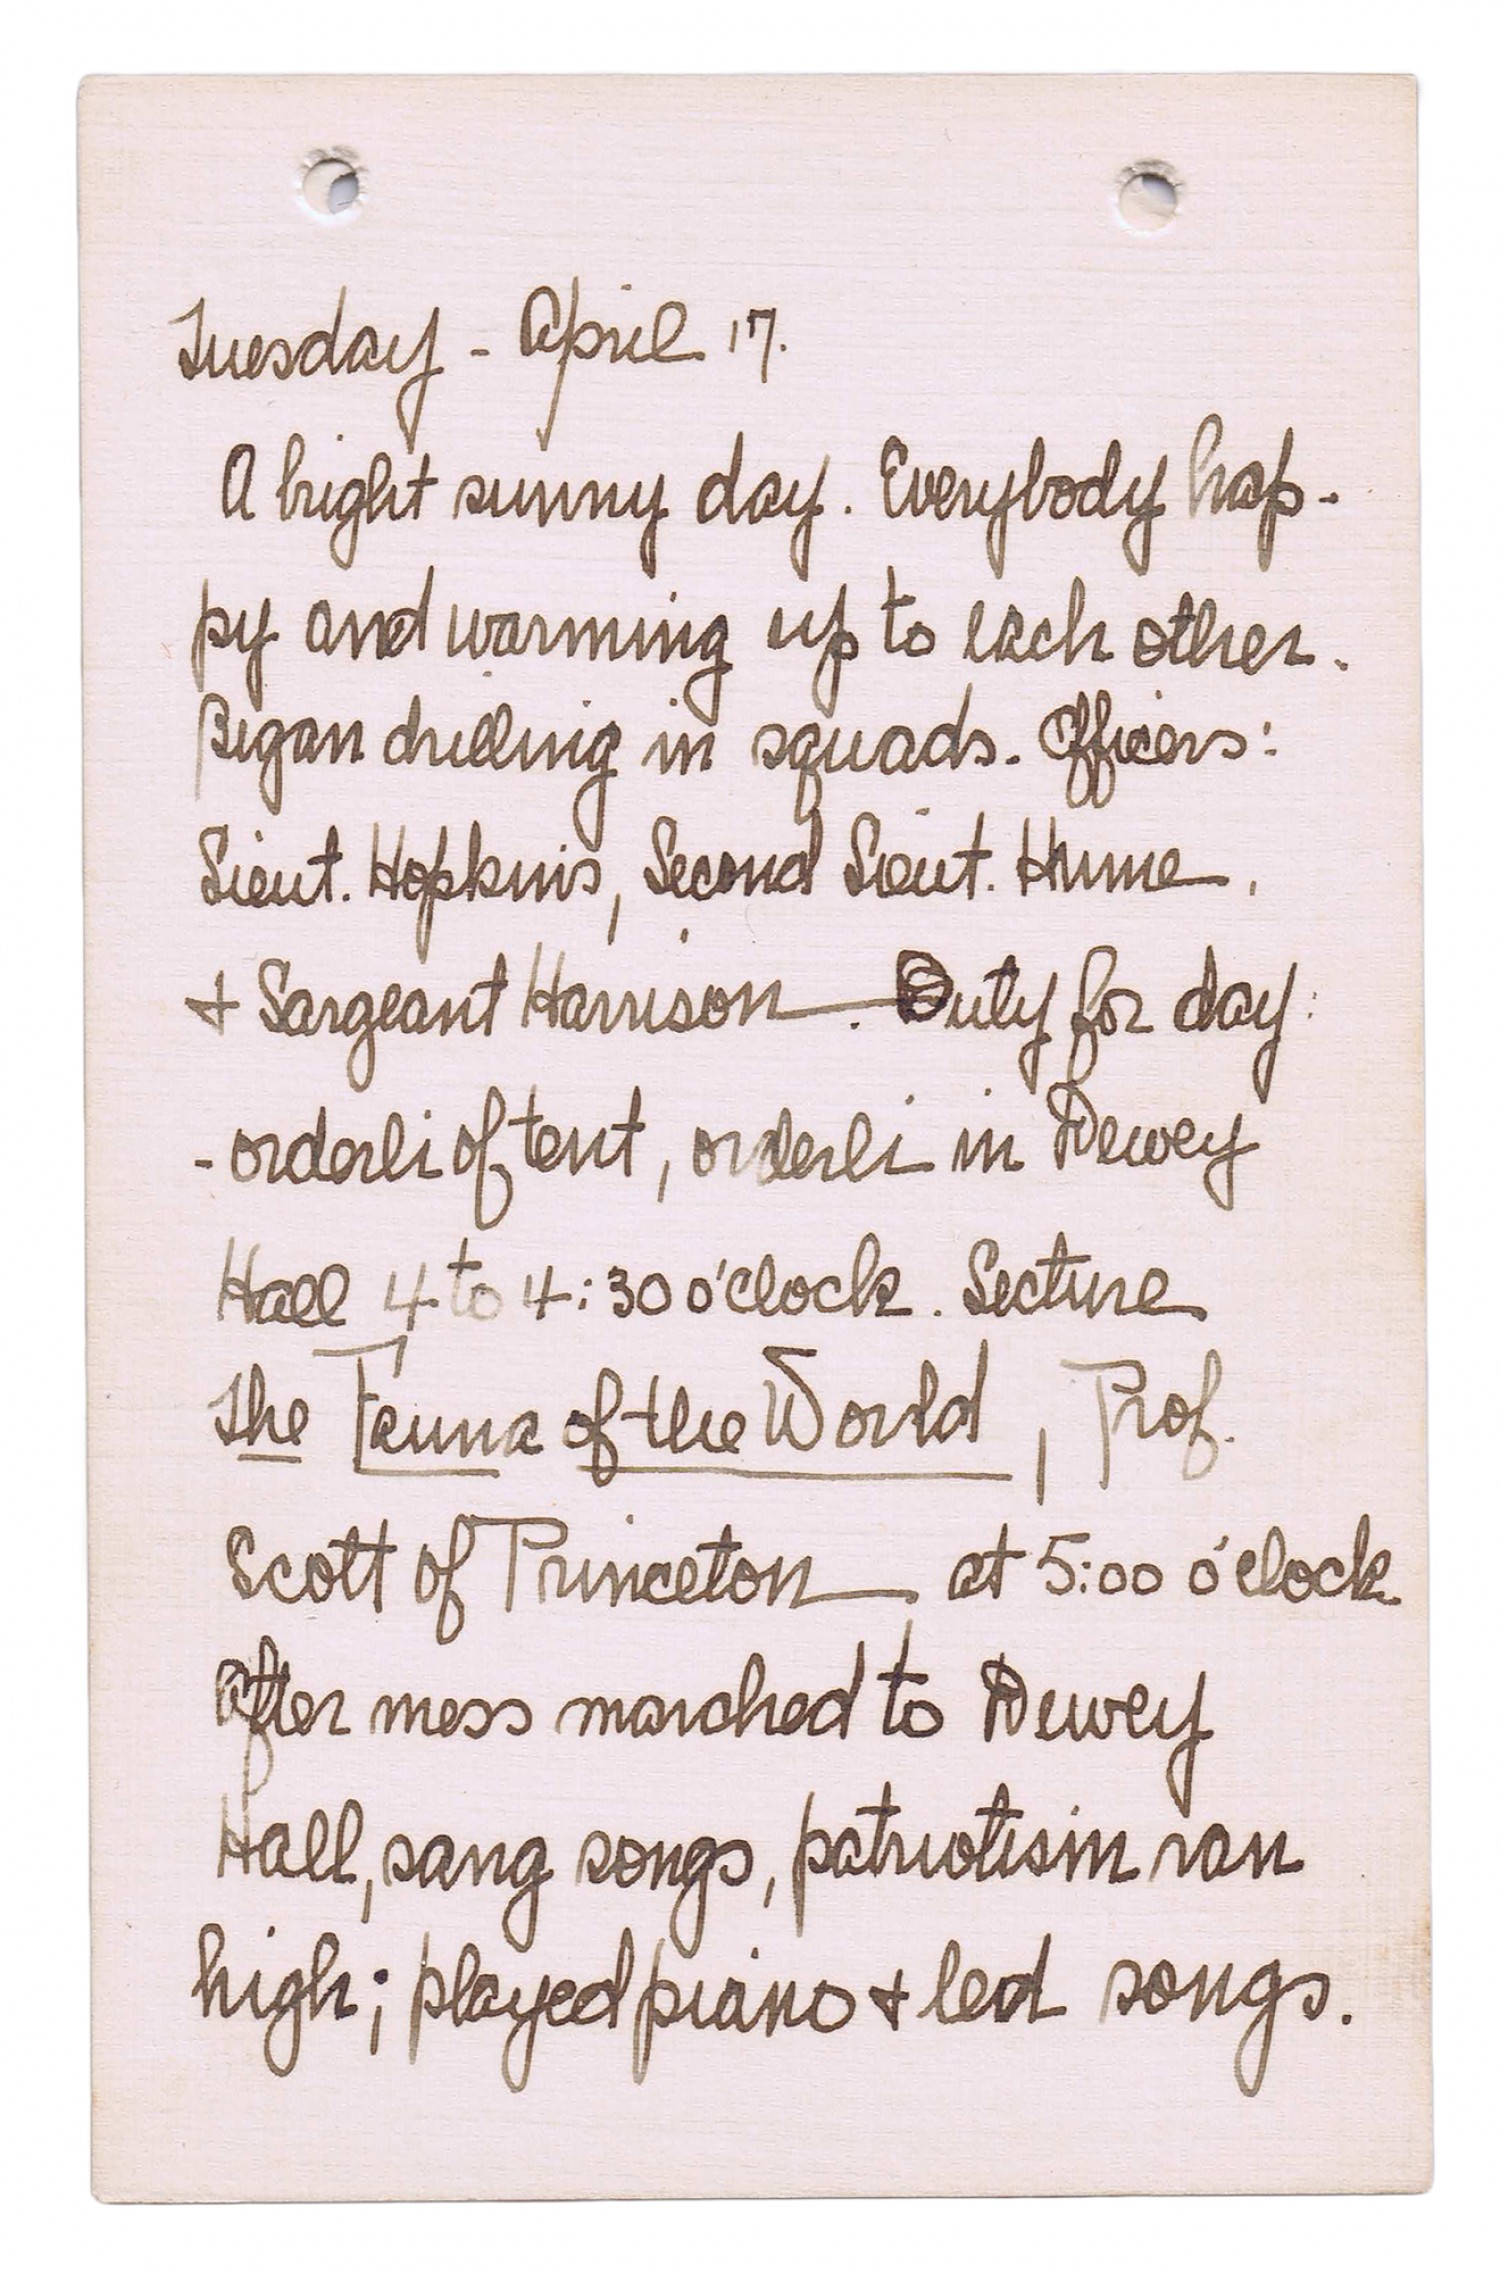 Tuesday - April 17.
A bright sunny day. Everybody hap-
py and warming up to each other.
Began drilling in squads. Officers:
Lieut. Hopkins, Second Lieut. Hume,
+ Sargeant Harrison. Duty for day:
- orderli of tent, orderli in Dewey
Hall 4 to 4:30 o'clock. Lecture
The Fauna of the World, Prof.
Scott of Princeton, at 5:00 o'clock
After mess marched to Dewey
Hall, sang songs, patriotism ran
high; played piano + led songs.